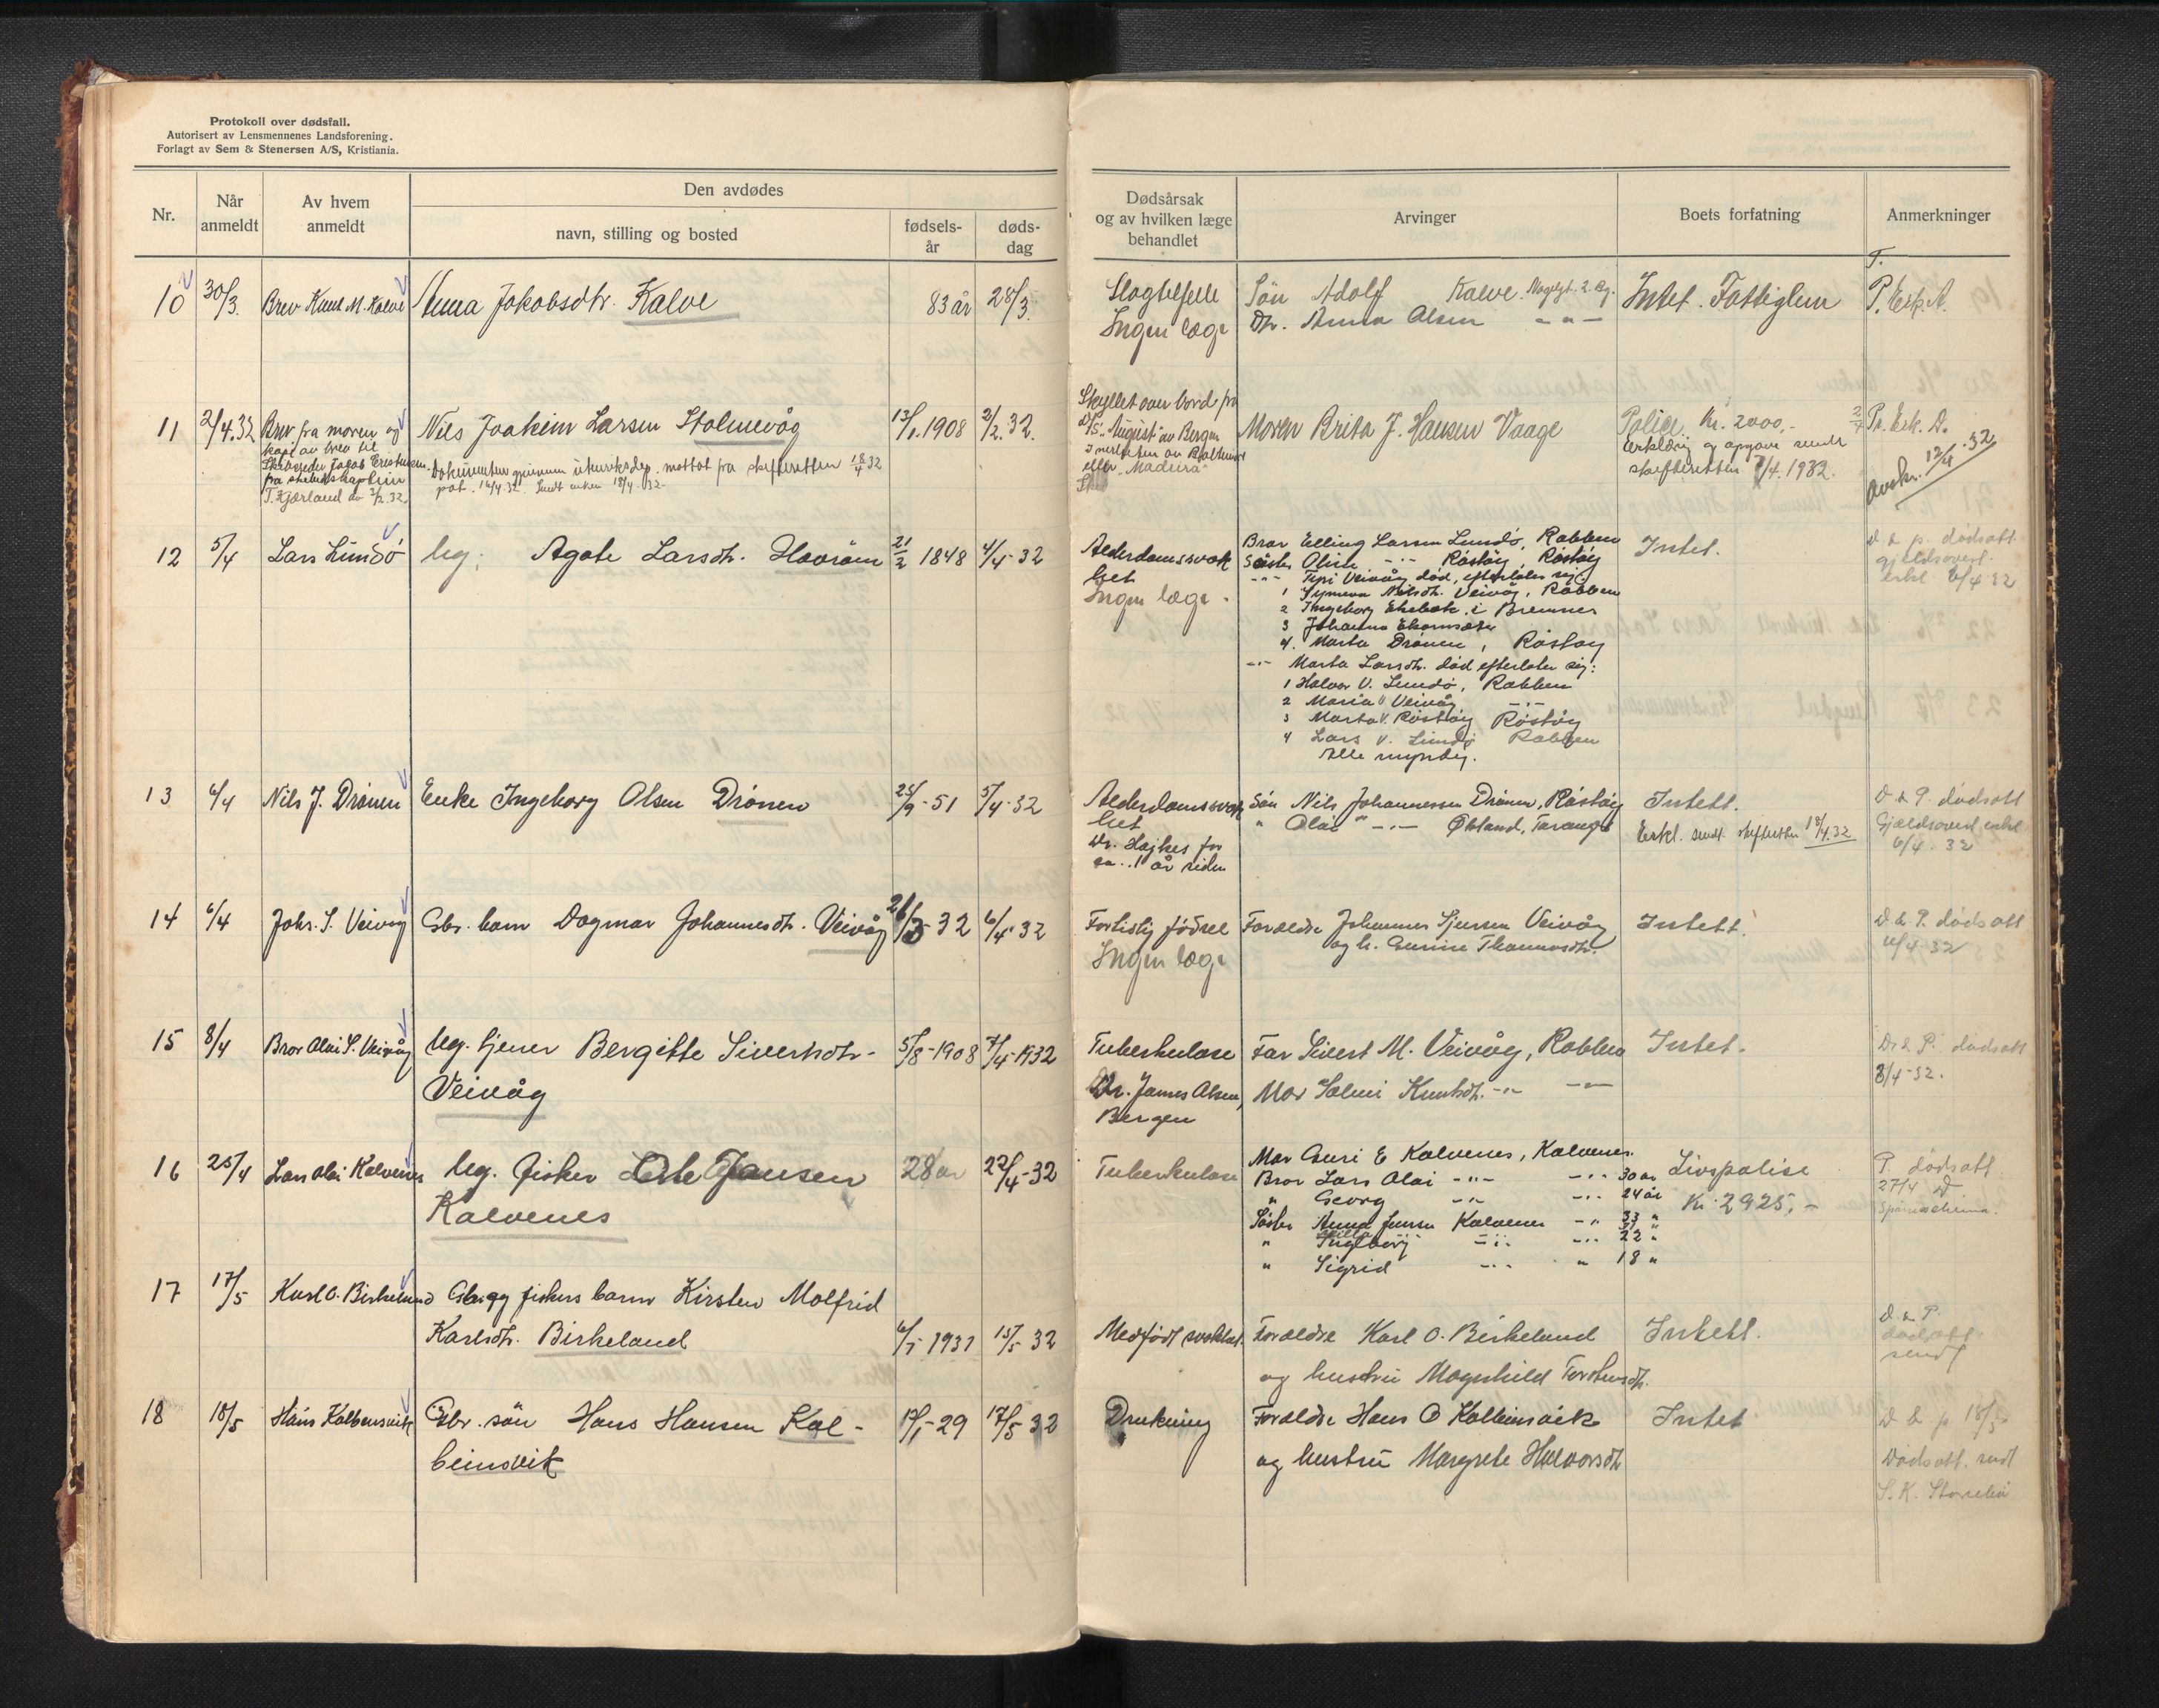 Protokoll over dødsfall.
Autorisert av Lensmennenes Landsforening.
Forlagt av Sem & Stenersen A/S, Kristiania.
Nr.
Når anmeldt
Av hvem anmeldt
Den avdødes
navn, stilling og bosted
fødsels-år
døds-dag
Dødsårsak og av hvilken læge behandlet
Arvinger
Boets forfatning
Anmerkninger
10 30/3. Brev Knut M. Kalve Anna Jakobsdtr. Kalve 83 år 28/3.
Slagtilfelle
Ingen læge
Søn Adolf Kalve. Mogelyst. 2. Og.
Dtr. Anna Olsen -"-
Intet. Fattiglem
T.
P. Erk. A.
11 2/4.32 Brev fra moren og
kopi av brev til
Skibsreder Jakob Kristensen
fra
T. Kjærland av 3/2 32.
Nils Joakim Larsen Stolmevåg 13/1.1908 2/2.32.
Dokumenter gjennem utenriksdep. mottat fra skifteretten 18/4 32
pat. 16/4.32. Sendt enken 18/4-32
Skyllet over bord fra
d/s "August" av Bergen
i nerheten av
eller "Madeira"
Moren Brita J. Hansen Vaage
Police kr. 2000,-
Erklæring og opgave sendt
skifteretten 7/4.1932.
Pr. Erk. D.
Avskr. 12/4-32
12 5/4 Lars Lundø Ug. Agate Larsdtr. Havråen 21/2 1848 4/4-32
Alderdomssvak
het
Ingen læge.
Bror Elling Larsen Lundø, Rabben
Søster Oline -"- Røstøy, Røstøy
-"- Veivåg død, efterlater sig:
1 Synneva Nilsdtr. Veivåg, Rabben
2 Ingeborg i Bremnes
3 Johanna
4. Marta Drønen, Røstøy
-"- Marta Larsdtr. død efterlater sig:
1 Halvor V. Lundø, Rabben
2 Maria V Veivåg -"-
3 Marta V. Røstøy Røstøy
4 Lars V. Lundø Rabben
Alle myndig.
Intet.
D & p. dødsatt
gjeldsovert.
erkl 6/4 32
13 6/4 Nils J. Drønen Enke Ingeborg Olsen Drønen 24/9-51 5/4-32
Alderdomssvak
het
Dr. Højnes for
ca. 1 år siden
Søn Nils Johannessen Drønen, Røstøy
" Olai " -"- Økland, Torange
Intett.
Erkl. sendt skifteretten 18/4.32
D & P. dødsatt
Gjældsovert. erkl
6/4.32
14 6/4 Johs. S. Veivåg Gbr. barn Dagmar Johannesdtr. Veivåg 26/3-32 6/4-32
Fortidig fødsel
Ingen læge
Foreldre Johannes Sjursen Veivåg
og h. Gurine Thomasdtr.
Intett.
D & P. dødsatt
6/4-32
15 8/4 Bror Olai S. Veivåg Ug. tjener Bergitte Sivertsdtr. 5/8-1908 7/4-1932
Veivåg
Tuberkulose
Dr. James Olsen,
Bergen
Far Sivert M. Veivåg, Rabben
Mor Salmi Knutsdtr. -"- -"-
Intet.
D & P. dødsatt
8/4-32.
16 25/4 Lars Olai Kalvenes Ug. fisker Ole Jansen 28 år 22/4-32
Kalvenes
Tuberkulose
Mor Guri E Kalvenes, Kalvenes.
Bror Lars Olai -"- -"- 30 år
" Georg -"- -"- 24 år
Søster Anna Jensen Kalvenes -"- 33 "
" Ingeborg -"- -"- 22 "
" Sigrid -"- " 18 "
Livspolise
Kr. 2925,-
P. dødsatt
27/4 D
17 17/5 Karl O. Birkeland Gbr. og fiskers barn Kirsten Molfrid
Karlsdtr. Birkeland 6/5 1931 15/5 32
Medfødt svakhet.
Foreldre Karl O. Birkeland
og hustru Magnhild Torstensdtr.
Intett.
D & P.
dødsatt.
sendt
18 18/5 Hans Kolbensvik Gbr. søn Hans Hansen Kol-
beinsvik 17/1-29 17/5 32
Drukning
Foreldre Hans O Kolbeinsvik
og hustru Margrete Halvorsdtr
Intet
D & p 18/5
Dødsatt. sendt
S. K. Storebø